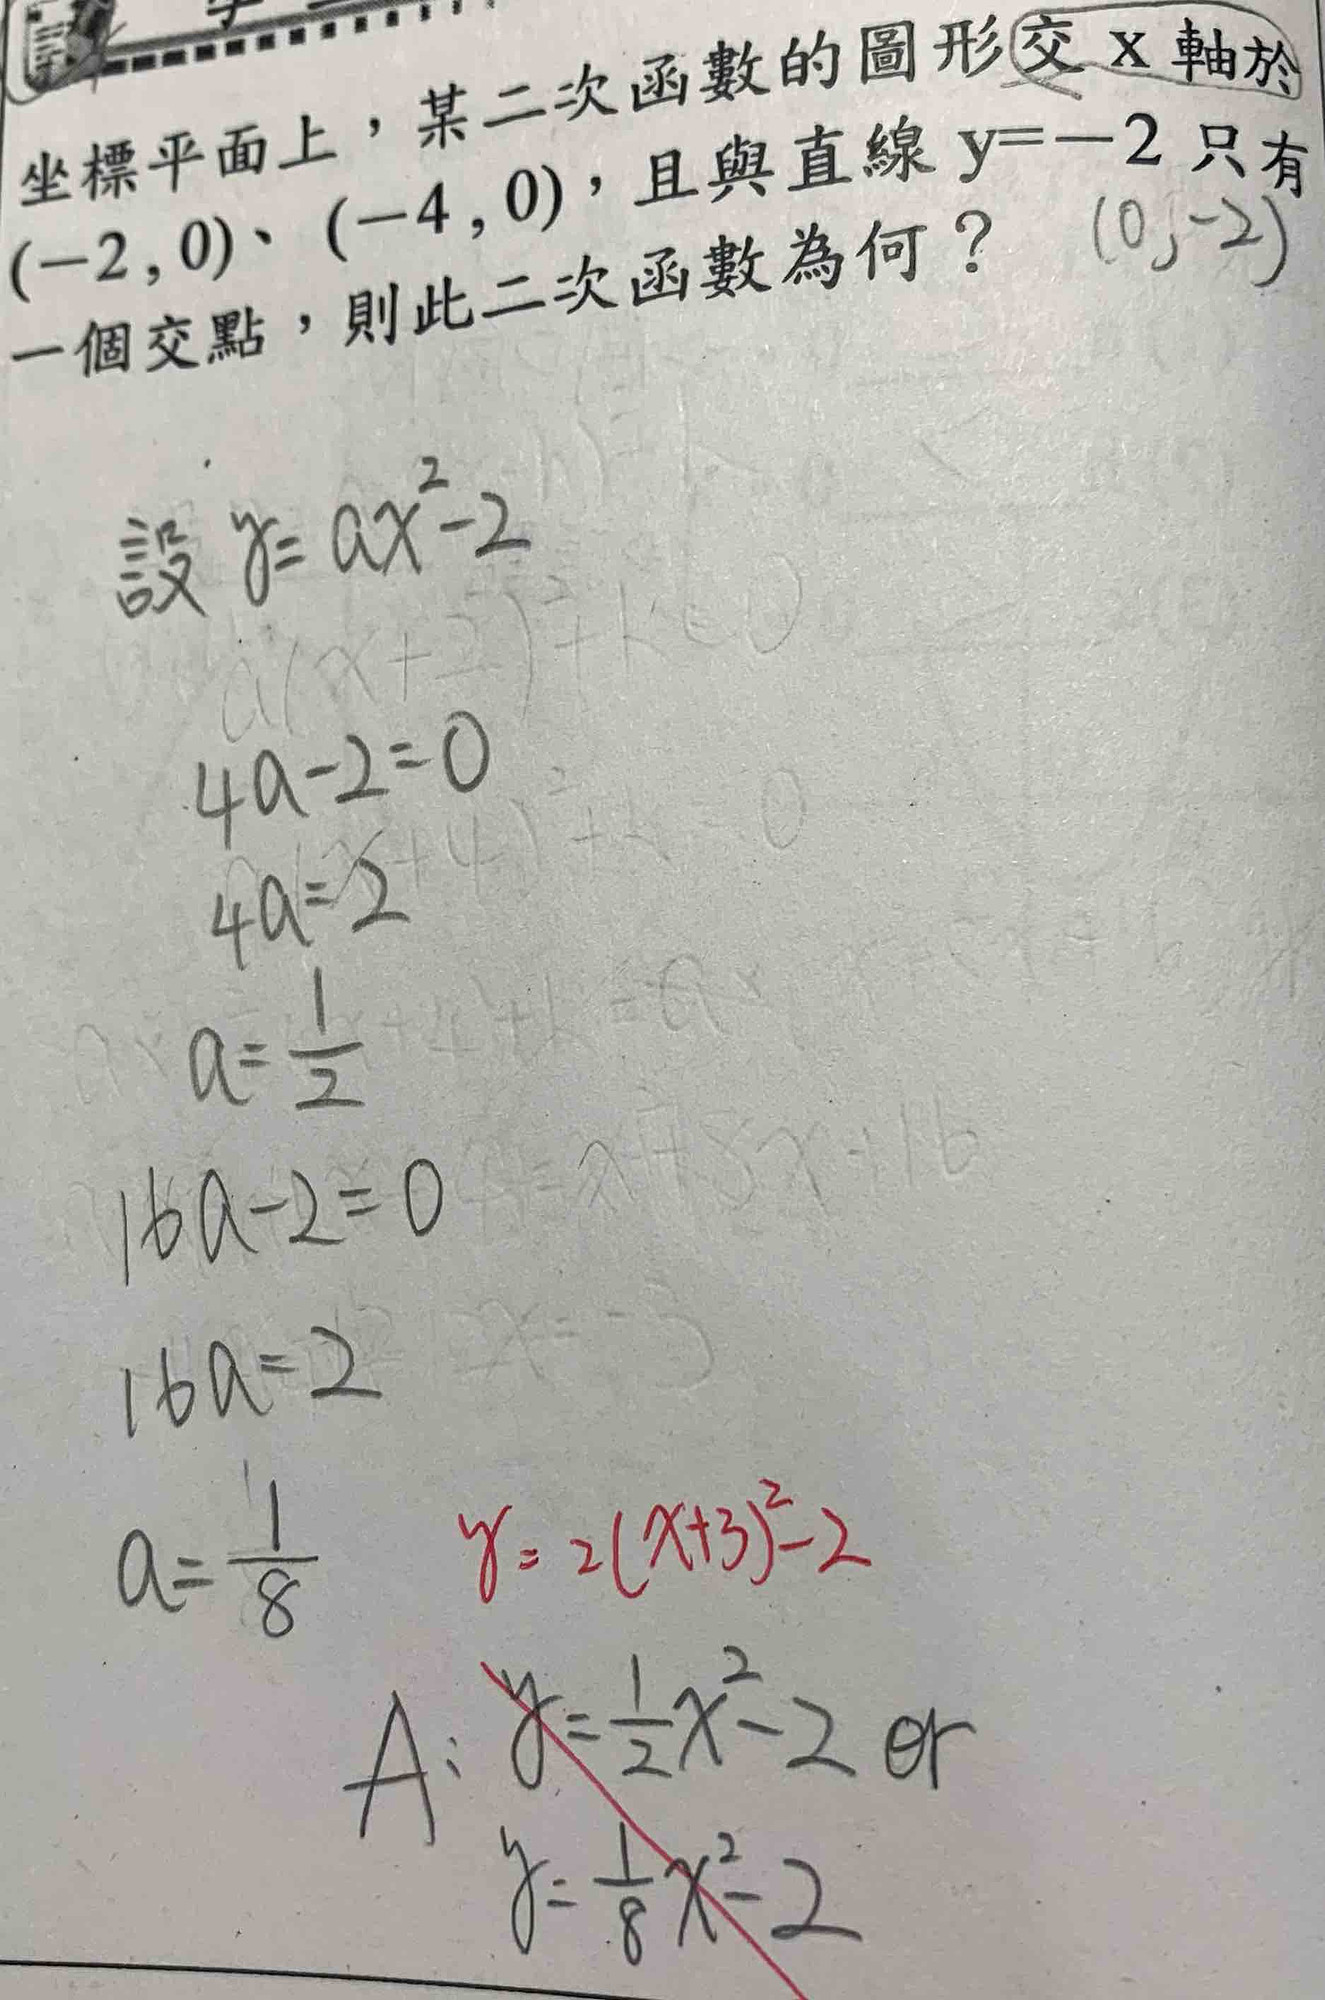 坐標平面上，某二次函數的圖形交 x 軸於
(−2 , 0)、(−4 , 0)，且與直線 y=−2 只有
一個交點，則此二次函數為何？
(0,-2)
設 y=ax²-2
a(x+2)²+k=0
4a-2=0
4a=2
a=1/2
16a-2=0
16a=2
a=1/8
y=2(x+3)²-2
A: y=1/2x²-2 or
y=1/8x²-2